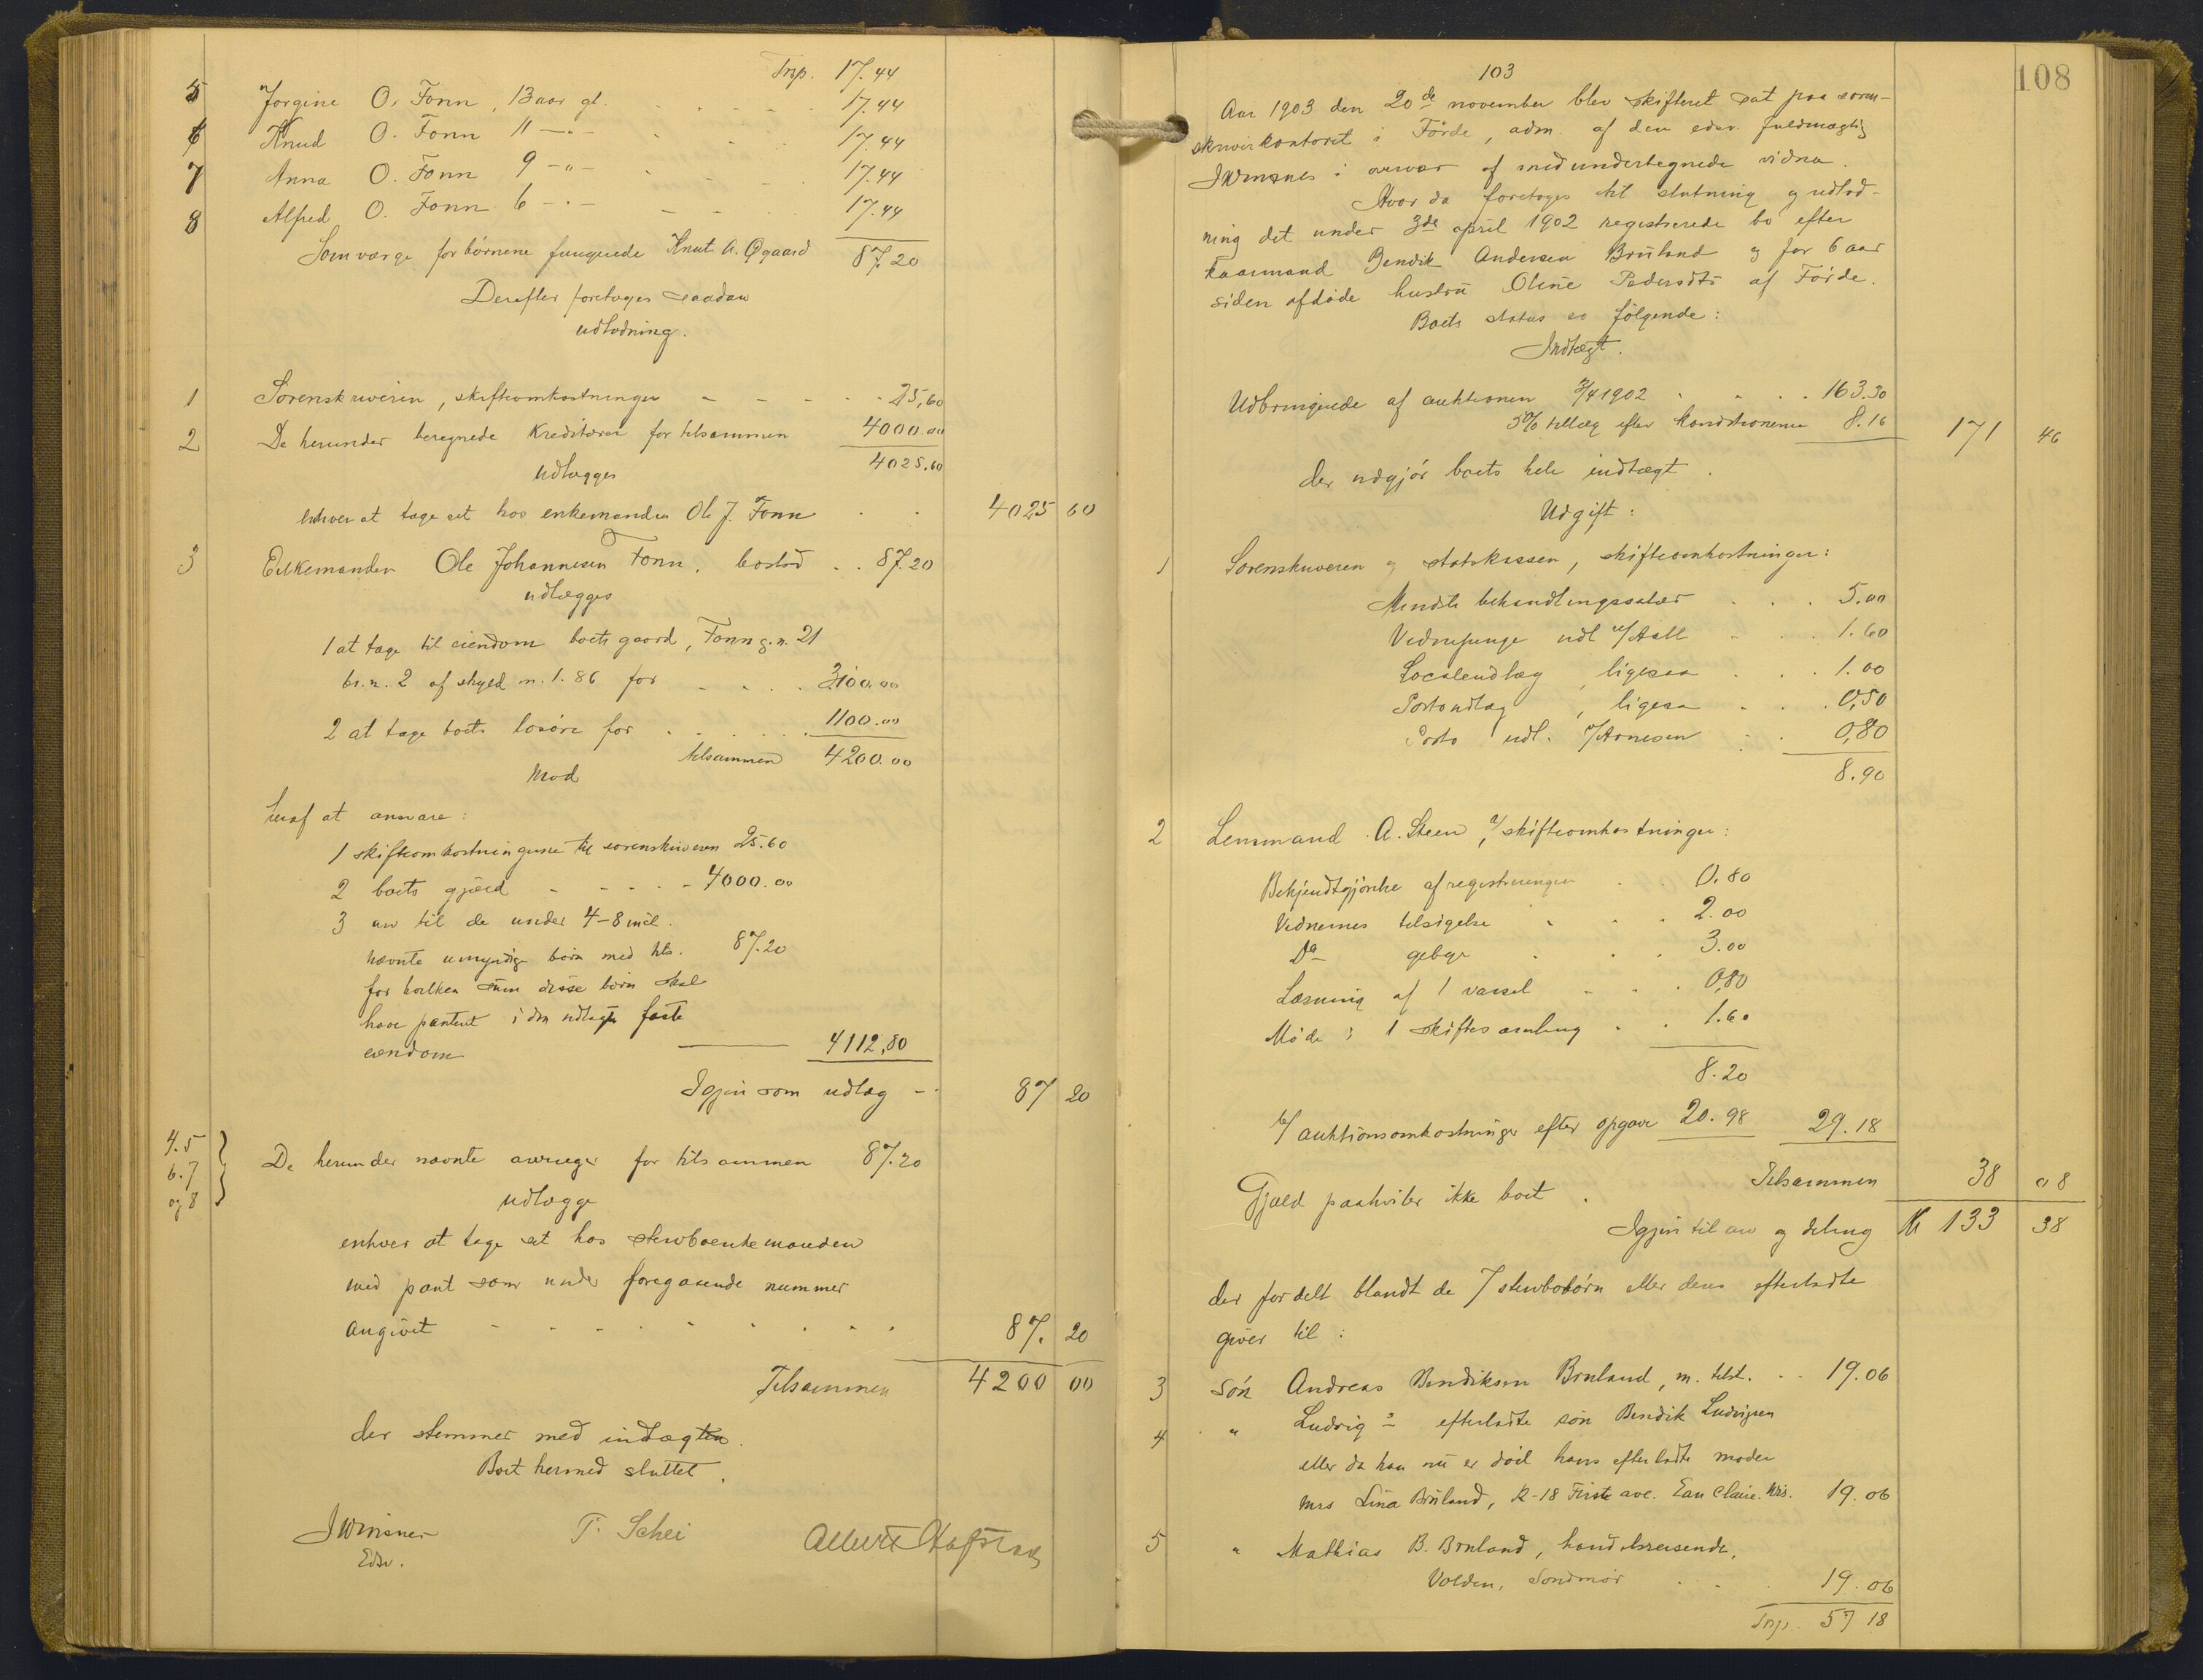 Trsp. 17.44
5 Jørgine O. Fonn, 13 aar gl. 17.44
6 Knud O. Fonn 11 —"— 17.44
7 Anna O. Fonn 9 —"— 17.44
8 Alfred O. Fonn 6 —"— 17.44
Som værge for børnene fungerede Knut A. Øgaard 87.20
Derefter foretoges saadan
udlodning.
1 Sorenskriveren, skifteomkostninger 25,60
2 De herunder beregnede kreditorer for tilsammen 4000.00
udlægges 4025.60
enhver at tage sit hos enkemanden Ole J. Fonn 4025 60
3 Enkemanden Ole Johannesen Fonn, boslod 87.20
udlægges
1 at tage til eiendom boets gaard, Fonn g.n. 21
br.n. 2 af skyld m. 1.86 for 3100.00
2 at tage boets løsøre for 1100.00
tilsammen 4200.00
Mod
heraf at ansvare:
1 skifteomkostningerne til sorenskriveren 25.60
2 boets gjæld 4000.00
3 arv til de under 4-8 incl.
nævnte umyndige børn med tils. 87.20
for hvilken sum disse børn skal
have panteret i den udlagte faste
eiendom 4112,80
Igjen som udlæg 87 20
4.5
6.7
og 8
De herunder nævnte arvinger for tilsammen 87.20
udlægges
enhver at tage sit hos stervboenkemanden
med pant som under foregaaende nummer
angivet 87. 20
Tilsammen 4200 00
der stemmer med indtægten.
Boet hermed sluttet.
JWinsnes T. Schei Albert
Edsv.
108
103
Aar 1903 den 20de november blev skifteret sat paa soren-
skriverkontoret i Førde, adm. af den edsv. fuldmægtig
JWinsnes i overvær af medundertegnede vidner.
Hvor da foretoges til slutning og udlod-
ning det under 3de april 1902 registrerede bo efter
kaarmand Bendik Andersen Bruland og for 6 aar
siden afdøde hustru Oline Pedersdtr af Førde.
Boets status er følgende:
Indtægt.
Udbringende af auktionen 3/4 1902 163.30
5% tillæg efter konditionerne 8.16 171 46
der udgjør boets hele indtægt.
Udgift:
1 Sorenskriveren og statskassen, skifteomkostninger:
Mindste behandlingssalær 5.00
Vidnepenge udl v/Aall 1.60
Localeudlæg, ligesaa 1.00
Portoudlæg, ligesaa 0,50
Porto udl. v/Arnesen 0,80
8.90
2 Lensmand A. Steen, a/ skifteomkostninger:
Bekjendtgjørelse af registreringen 0.80
Vidnernes tilsigelse 2.00
Do gebyr 3.00
Læsning af 1 varsel 0,80
Møde i 1 skiftesamling 1.60
8.20
b/ auktionsomkostninger efter opgave 20.98 29.18
Tilsammen 38 08
Gjæld paahviler ikke boet.
Igjen til arv og deling Kr 133 38
der fordelt blandt de 7 stervbobørn eller deres efterladte
giver til:
3 Søn Andreas Bendiksen Bruland, m. tilst. 19.06
4 " Ludvig's efterladte søn Bendik Ludvigsen
eller da han nu er død hans efterladte moder
Mrs Lina Bruland, R-18 Firste ave. Eau Claire. Wis. 19.06
5 " Mathias B. Bruland, handelsreisende,
Volden, Søndmør 19.06
Trsp. 57 18